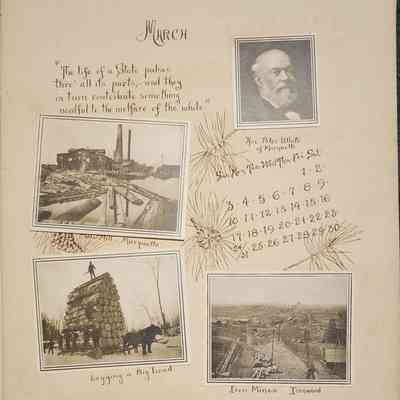 March
"The life of a State pulses
thro' all its parts, and they
in turn contribute something
needful to the welfare of the whole"
Hon. Peter White
of Marquette
Sun. Mon. Tue. Wed. Thu. Fri. Sat.
1 - 2 -
3 - 4 - 5 - 6 - 7 - 8 - 9 -
10 - 11 - 12 - 13 - 14 - 15 - 16 -
17 - 18 - 19 - 20 - 21 - 22 - 23 -
24 31 25 - 26 - 27 - 28 - 29 - 30 -
Mill, Marquette
Logging a Big Load
Iron Mines Ironwood